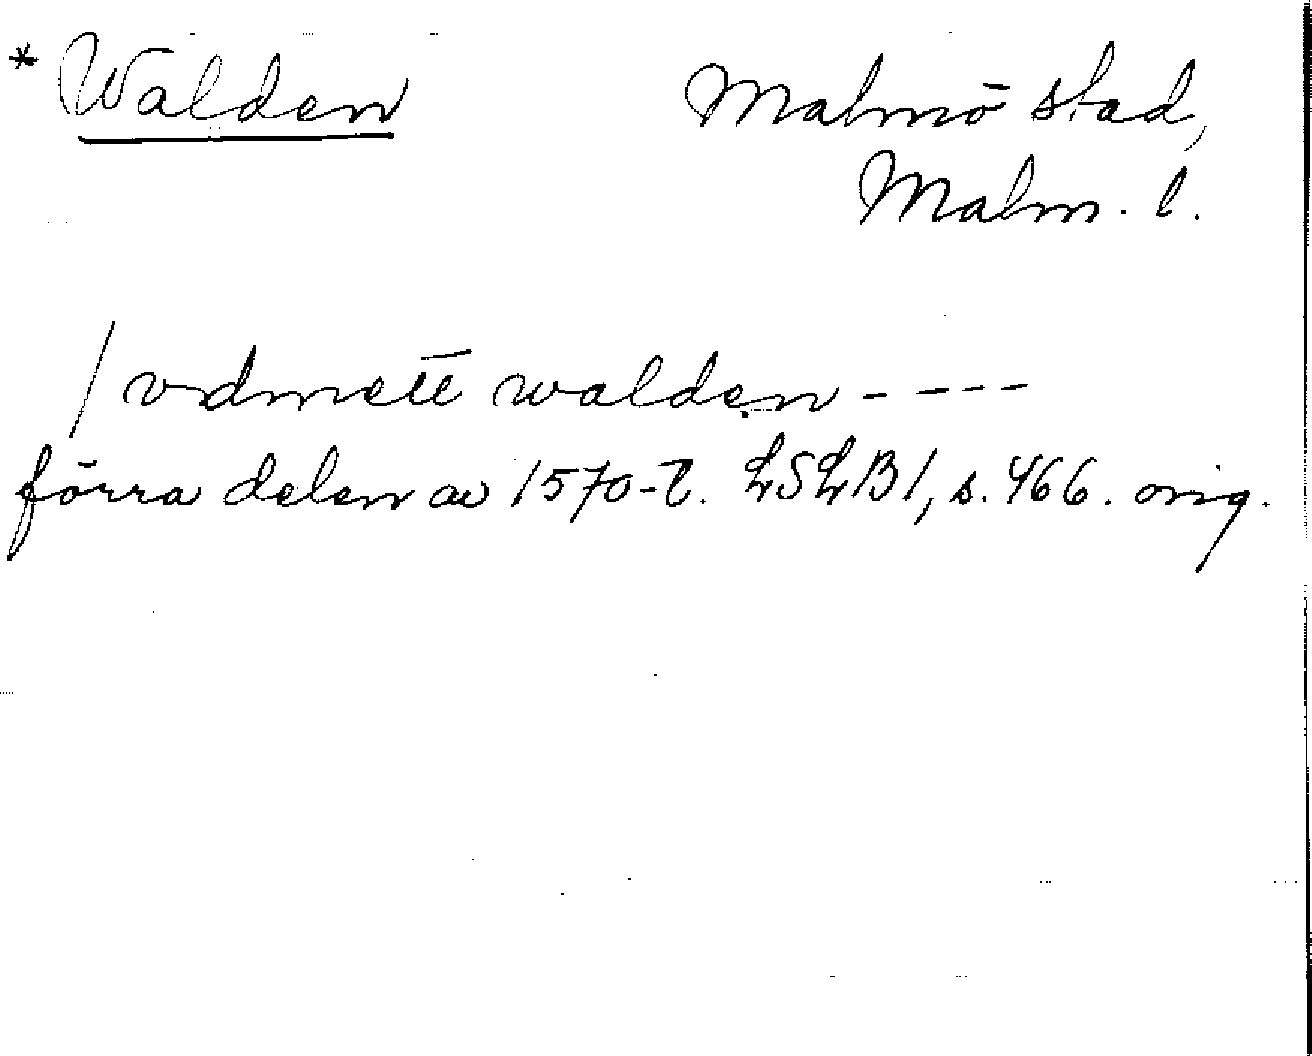 * Walden
Malmö stad,
Malm. l.
/ vdmett walden - - - -
förra delen av 1570-t. LSLB1, s. 466. orig.